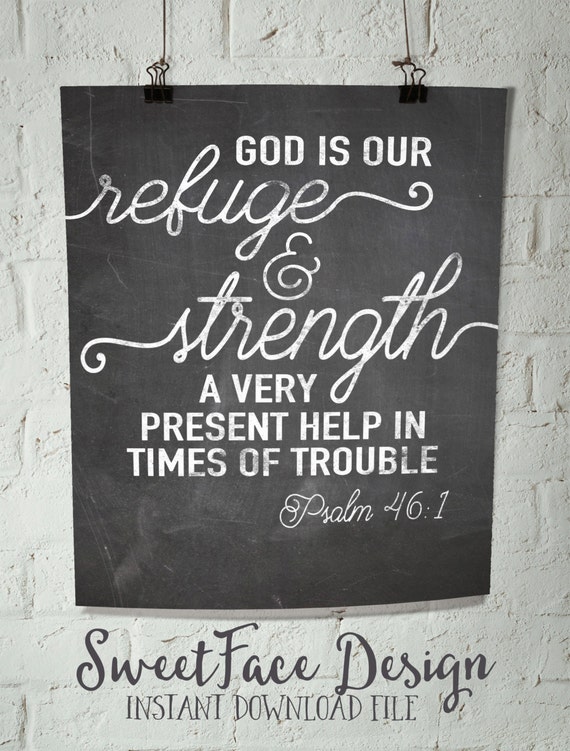 GOD IS OUR
refuge
&
strength
A VERY
PRESENT HELP IN
TIMES OF TROUBLE
Psalm 46:1
SweetFace Design
INSTANT DOWNLOAD FILE